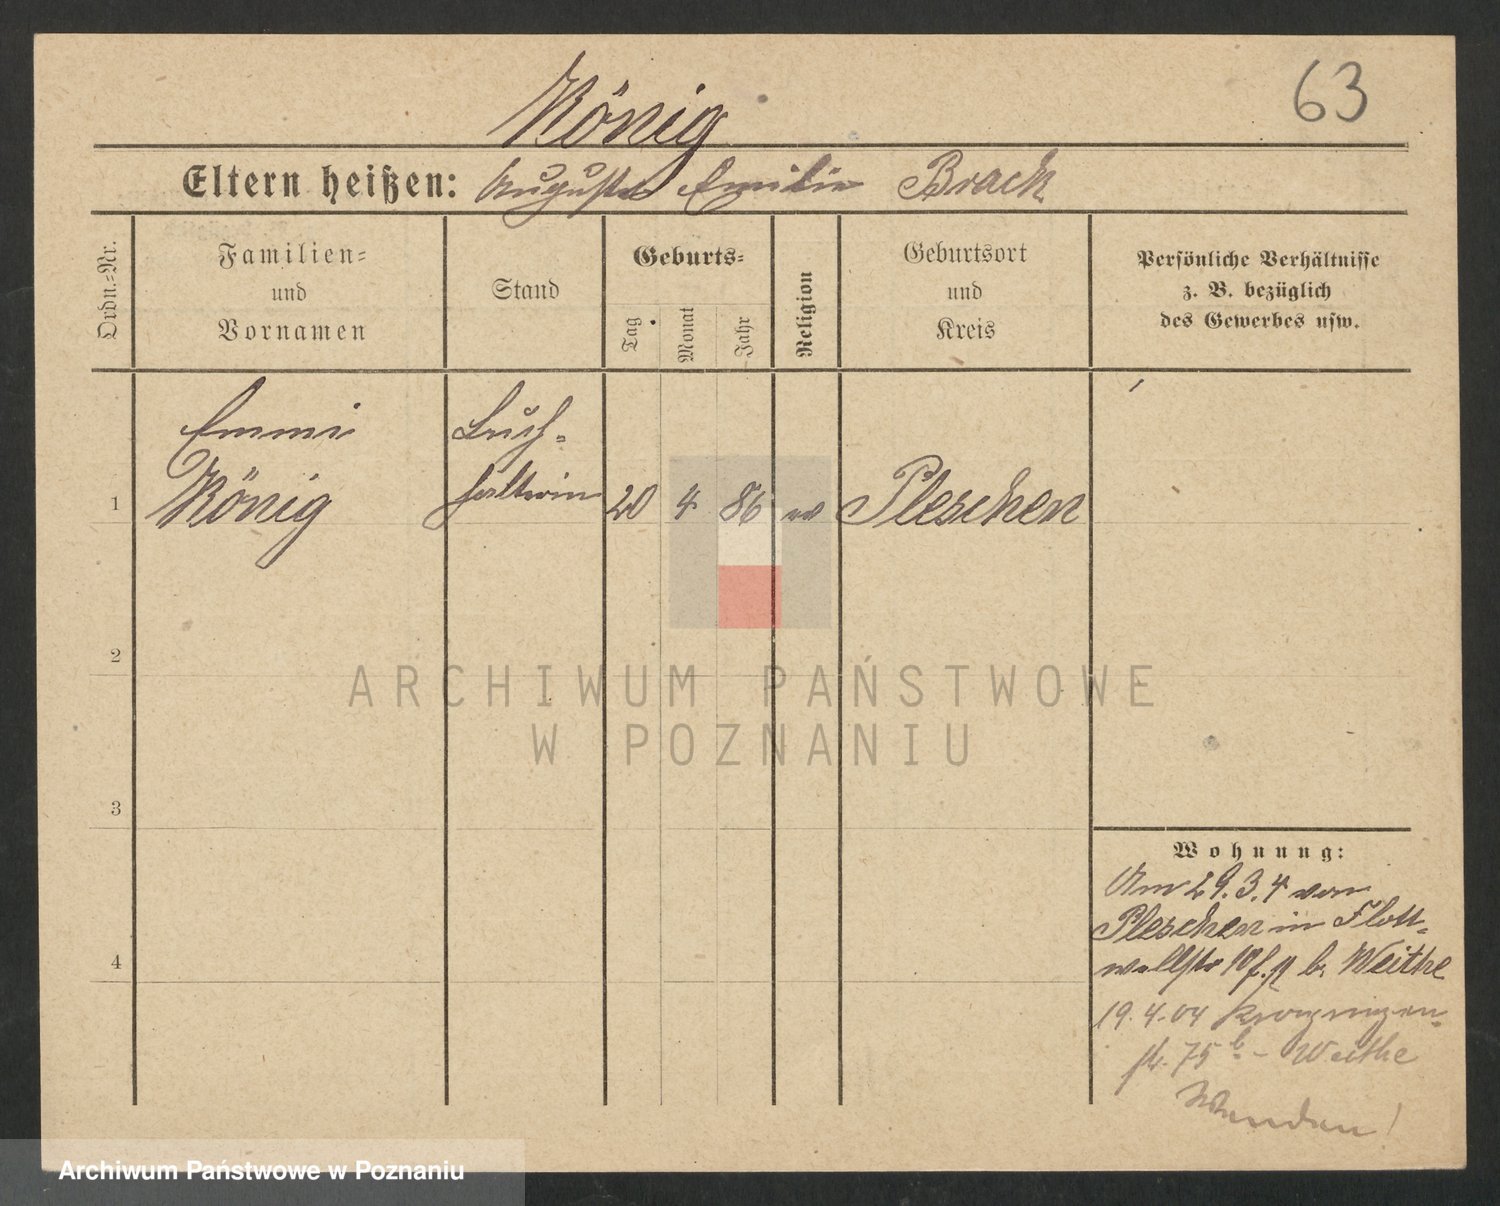 63
König
Eltern heißen: August Emilie Brack
Ordn.-Nr.
Familien-
und
Vornamen
Stand
Geburts-
Tag
Monat
Jahr
Religion
Geburtsort
und
Kreis
Persönliche Verhältnisse
z. B. bezüglich
des Gewerbes usw.
Emmi
König
Buch-
halterin
1
20 4 86
Pleschen
2
3
4
Wohnung:
Am 29.3.4 von
Pleschen in Flott-
wellstr 10 b. Weithe
19.4.04 Kronprinzen-
str. 75 b - Weithe
Wenden!
ARCHIWUM PAŃSTWOWE
W POZNANIU
Archiwum Państwowe w Poznaniu